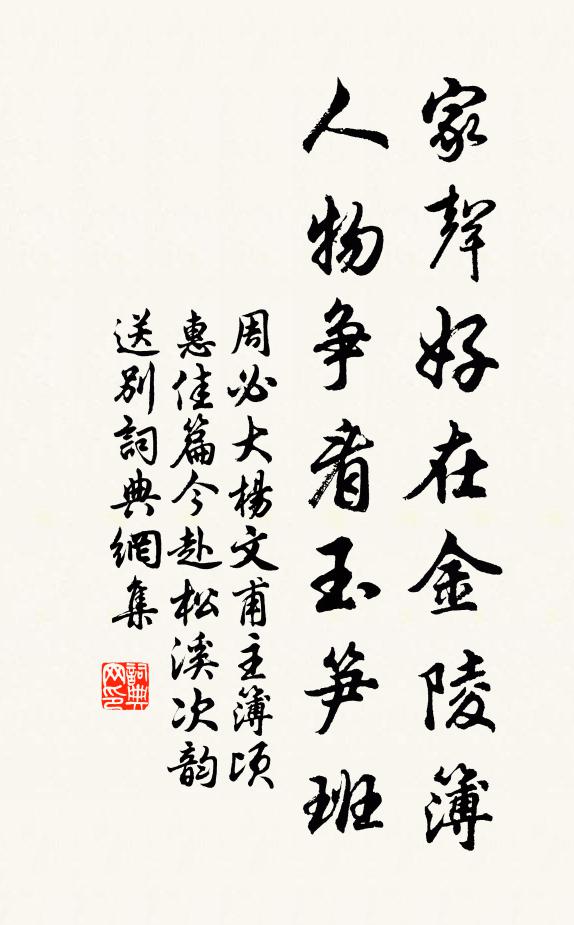 家聲好在金陵簿
人物争看玉笋班
周必大楊文甫主簿頃
惠佳篇今赴松溪次韵
送别詞典網集
詞典
网印